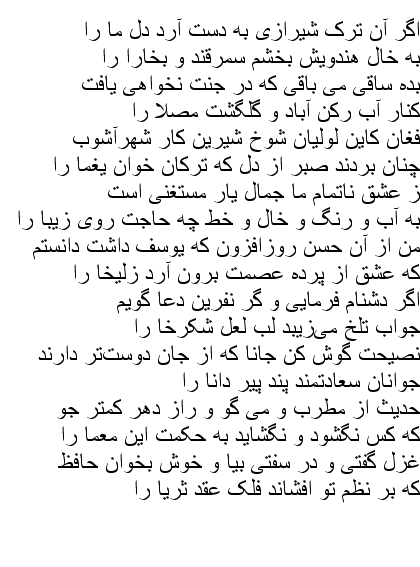 اگر آن ترک شیرازی به دست آرد دل ما را
به خال هندویش بخشم سمرقند و بخارا را
بده ساقی می باقی که در جنت نخواهی یافت
کنار آب رکن آباد و گلگشت مصلا را
فغان کاین لولیان شوخ شیرین کار شهرآشوب
چنان بردند صبر از دل که ترکان خوان یغما را
ز عشق ناتمام ما جمال یار مستغنی است
به آب و رنگ و خال و خط چه حاجت روی زیبا را
من از آن حسن روزافزون که یوسف داشت دانستم
که عشق از پرده عصمت برون آرد زلیخا را
اگر دشنام فرمایی و گر نفرین دعا گویم
جواب تلخ می‌زیبد لب لعل شکرخا را
نصیحت گوش کن جانا که از جان دوست‌تر دارند
جوانان سعادتمند پند پیر دانا را
حدیث از مطرب و می گو و راز دهر کمتر جو
که کس نگشود و نگشاید به حکمت این معما را
غزل گفتی و در سفتی بیا و خوش بخوان حافظ
که بر نظم تو افشاند فلک عقد ثریا را